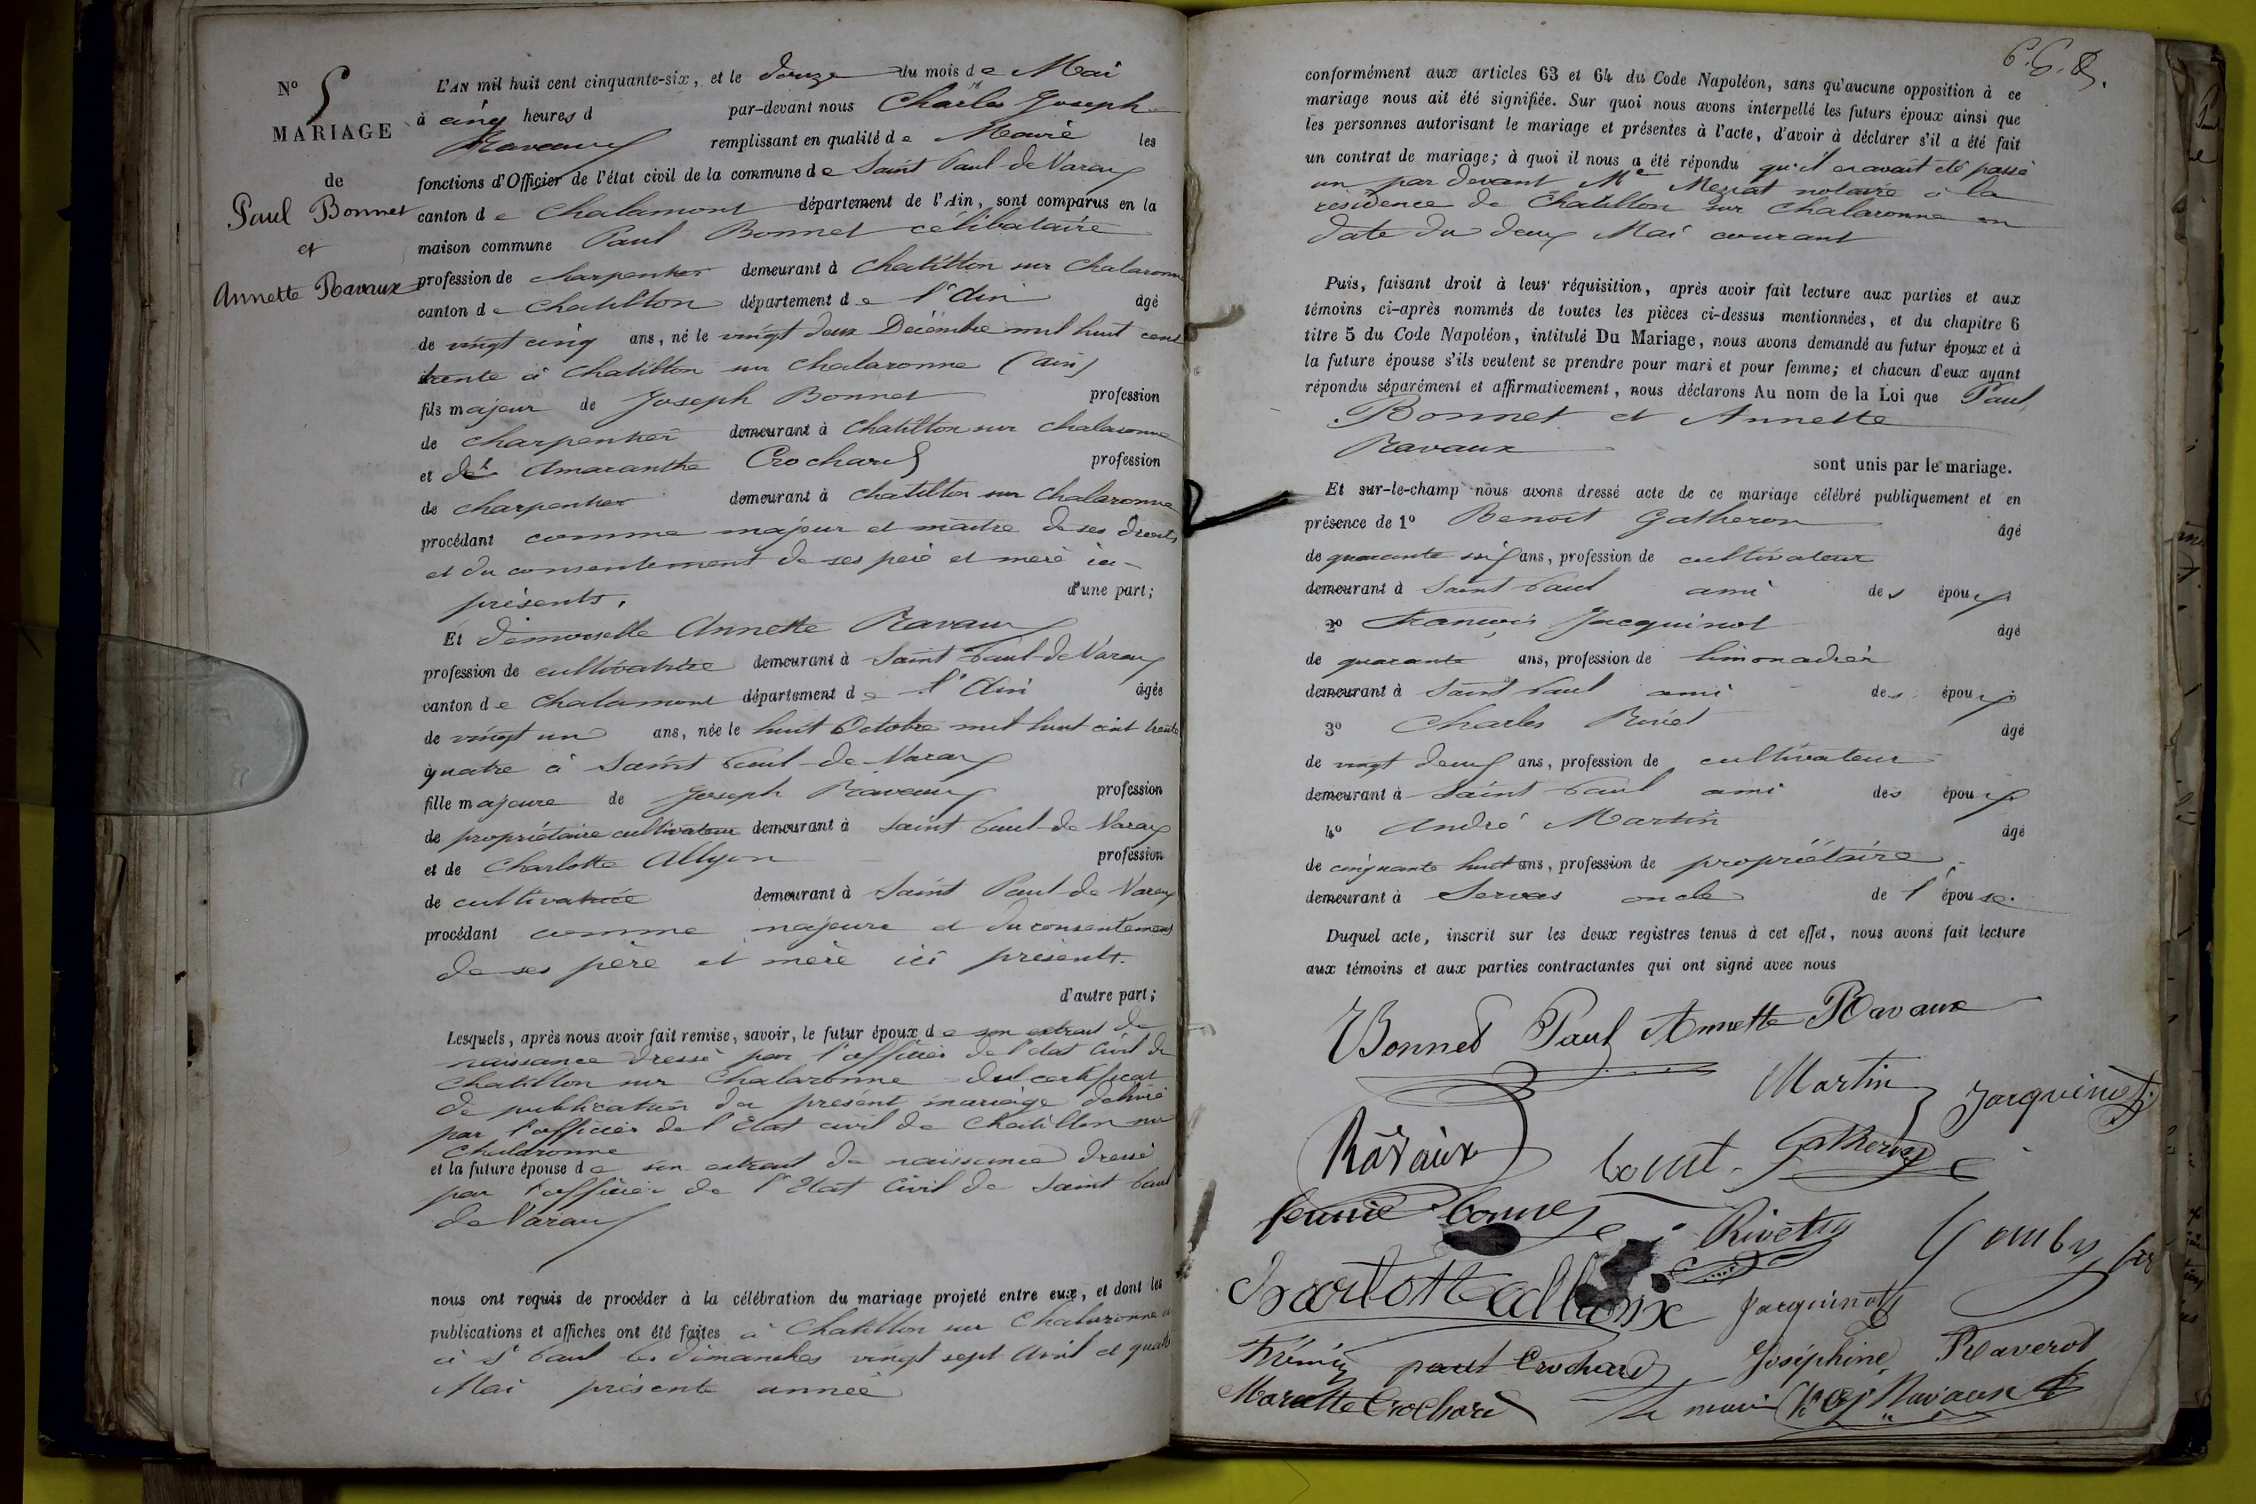 Nº 5
MARIAGE
de
Paul Bonnet
et
Annette Ravaux
L'AN mil huit cent cinquante-six, et le douze du mois de Mai
à cinq heures d par-devant nous Charles Joseph
Ravaux remplissant en qualité de Maire les
fonctions d'Officier de l'état civil de la commune de Saint Paul de Varax
canton de Chalamont département de l'Ain, sont comparus en la
maison commune Paul Bonnet célibataire
profession de charpentier demeurant à Chatillon sur Chalaronne
canton de Chatillon département de l'Ain âgé
de vingt cinq ans, né le vingt deux Décembre mil huit cent
trente à Chatillon sur Chalaronne (ain)
fils majeur de Joseph Bonnet profession
de charpentier demeurant à Chatillon sur Chalaronne
et de Amaranthe Crochard profession
de charpentier demeurant à Chatillon sur Chalaronne
procédant comme majeur et maitre de ses droits
et du consentement de ses père et mère ici
présents. d'une part;
Et demoiselle Annette Ravaux
profession de cultivatrice demeurant à Saint Paul de Varax
canton de Chalamont département de l'Ain âgée
de vingt un ans, née le huit Octobre mil huit cent trente
quatre à Saint Paul de Varax
fille majeure de Joseph Ravaux profession
de propriétaire cultivateur demeurant à Saint Paul de Varax
et de Charlotte Allyon profession
de cultivatrice demeurant à Saint Paul de Varax
procédant comme majeure et du consentement
de ses père et mère ici présents.
d'autre part;
Lesquels, après nous avoir fait remise, savoir, le futur époux de son extrait de
naissance dressé par l'officier de l'état civil de
Chatillon sur Chalaronne du certificat
de publication du présent mariage délivré
par l'officier de l'Etat civil de Chatillon sur
Chalaronne
et la future épouse de son extrait de naissance dressé
par l'officier de l'Etat Civil de Saint Paul
de Varax
nous ont requis de procéder à la célébration du mariage projeté entre eux, et dont les
publications et affiches ont été faites à Chatillon sur Chalaronne et
à St Paul les dimanches vingt sept Avril et quatre
Mai présente année
conformément aux articles 63 et 64 du Code Napoléon, sans qu'aucune opposition à ce
mariage nous ait été signifiée. Sur quoi nous avons interpellé les futurs époux ainsi que
les personnes autorisant le mariage et présentes à l'acte, d'avoir à déclarer s'il a été fait
un contrat de mariage; à quoi il nous a été répondu qu'il en avait été passé
un par devant Me notaire à la
résidence de Chatillon sur Chalaronne en
date du deux Mai courant
Puis, faisant droit à leur réquisition, après avoir fait lecture aux parties et aux
témoins ci-après nommés de toutes les pièces ci-dessus mentionnées, et du chapitre 6
titre 5 du Code Napoléon, intitulé Du Mariage, nous avons demandé au futur époux et à
la future épouse s'ils veulent se prendre pour mari et pour femme; et chacun d'eux ayant
répondu séparément et affirmativement, nous déclarons Au nom de la Loi que Paul
Bonnet et Annette
Ravaux
sont unis par le mariage.
Et sur-le-champ nous avons dressé acte de ce mariage célébré publiquement et en
présence de 1º Benoit Gatheron âgé
de quarante six ans, profession de cultivateur
demeurant à Saint Paul ami des époux
2º François Jacquinot âgé
de quarante ans, profession de limonadier
demeurant à Saint Paul ami des époux
3º Charles Rivet âgé
de vingt deux ans, profession de cultivateur
demeurant à Saint Paul ami des époux
4º André Martin âgé
de cinquante huit ans, profession de propriétaire
demeurant à Servas oncle de l'épouse.
Duquel acte, inscrit sur les deux registres tenus à cet effet, nous avons fait lecture
aux témoins et aux parties contractantes qui ont signé avec nous
Bonnet Paul Annette Ravaux
Martin Jacquinot
Ravaux Gatheron
Rivet
Jacquinot
paul Crochard Joséphine Raverot
Mariette Crochard Le maire Ravaux